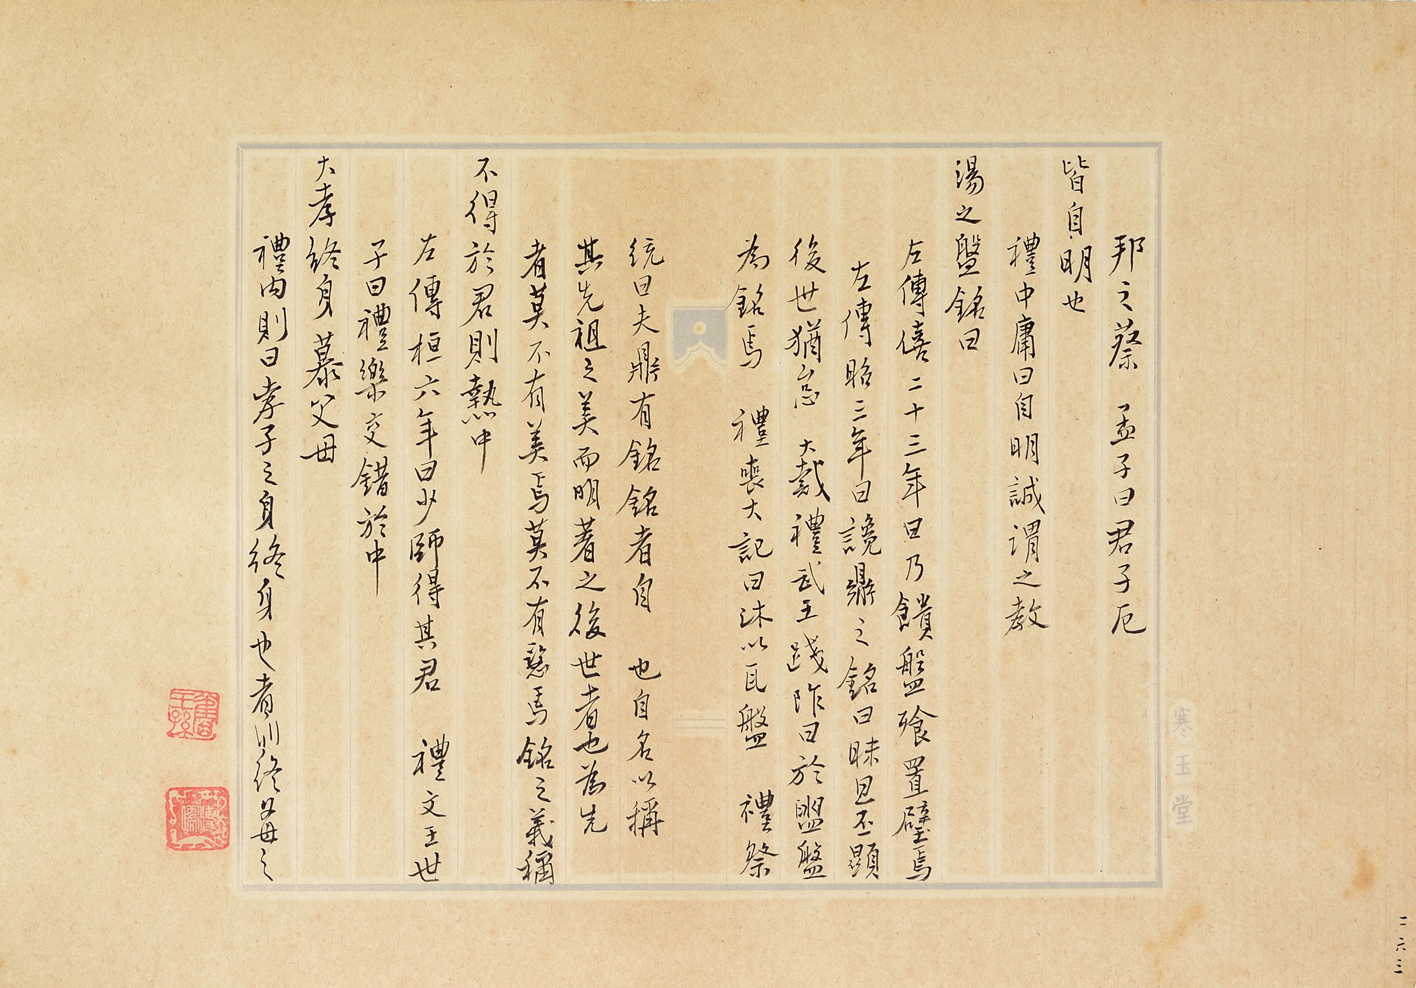 邦之蔡 孟子曰君子厄
皆自明也
禮中庸曰自明誠謂之教
湯之盤銘曰
左傳僖二十三年曰乃饋盤飧置璧焉
左傳昭三年曰讒鼎之銘曰昧旦丕顯
後世猶怠 大戴禮武王踐阼曰於盥盤
為銘焉 禮喪大記曰沐以瓦盤 禮祭
統曰夫鼎有銘銘者自 也自名以稱
其先祖之美而明著之後世者也為先
者莫不有美焉莫不有惡焉銘之義稱
不得於君則熱中
左傳桓六年曰少師得其君 禮文王世
子曰禮樂交錯於中
大孝終身慕父母
禮內則曰孝子之身終身也者川終父母之
寒玉堂
二六三